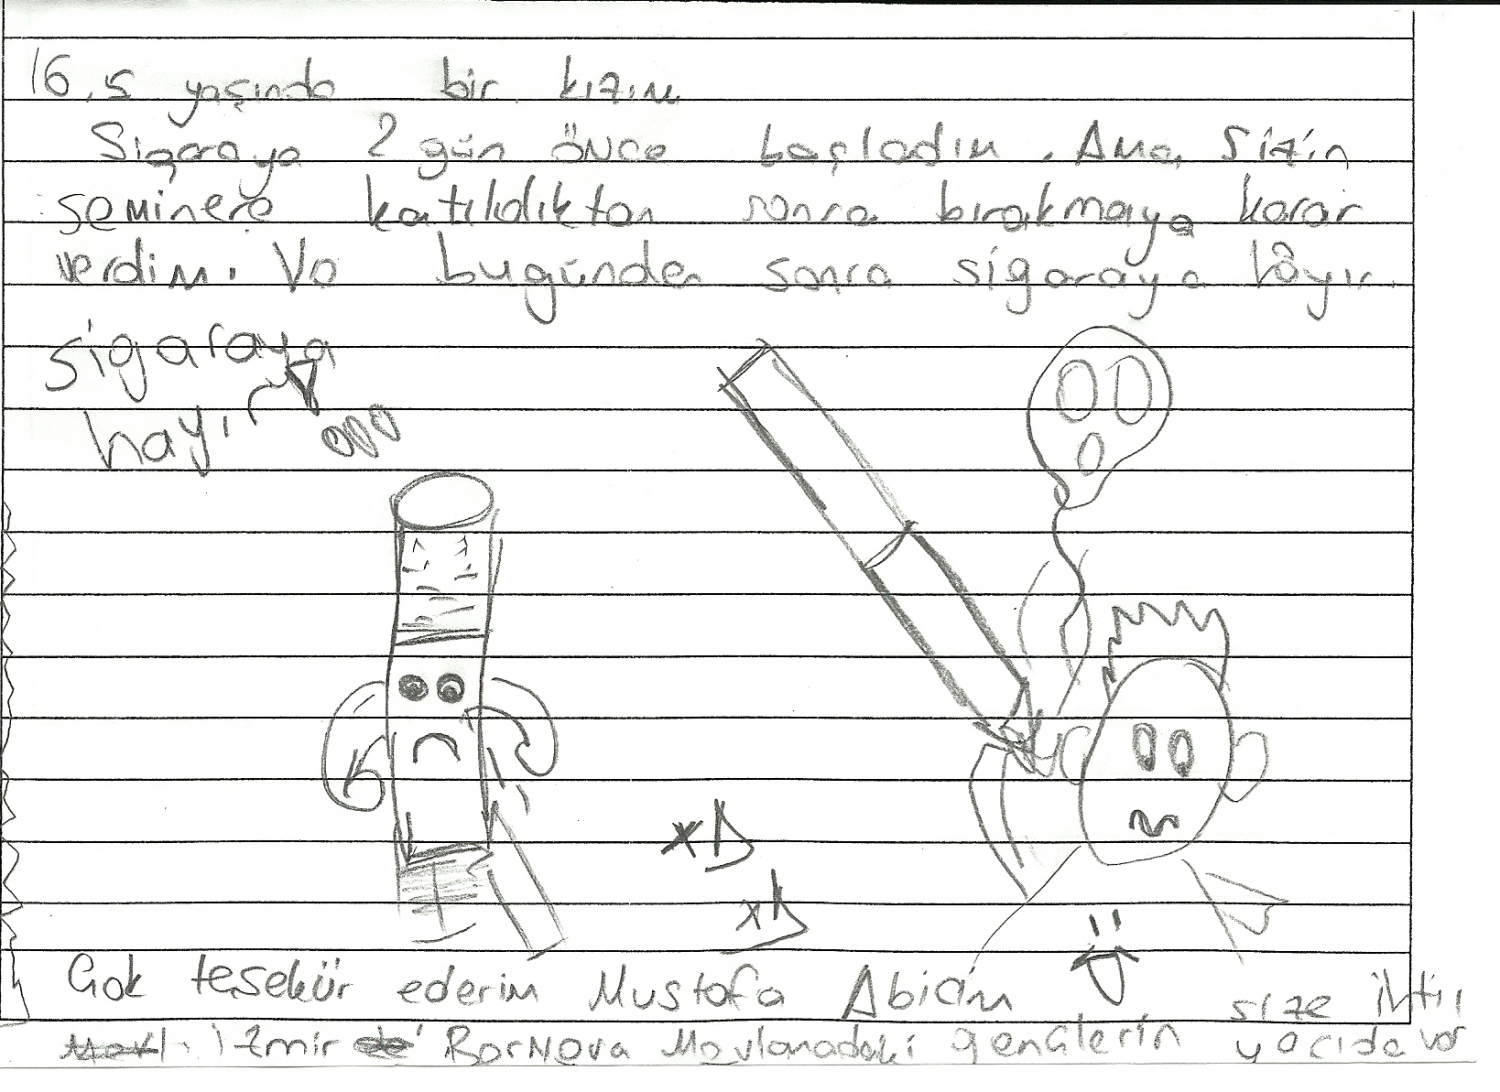 16,5 yaşında bir kızım
Sigaraya 2 gün önce başladım. Ama sizin
seminere katıldıktan sonra bırakmaya karar
verdim. Ve bugünden sonra sigaraya hayır
sigaraya
hayır
xD
xD
Çok teşekür ederim Mustafa Abicim
size ihti
İzmir Bornova Mevlanadaki gençlerin yacıda var